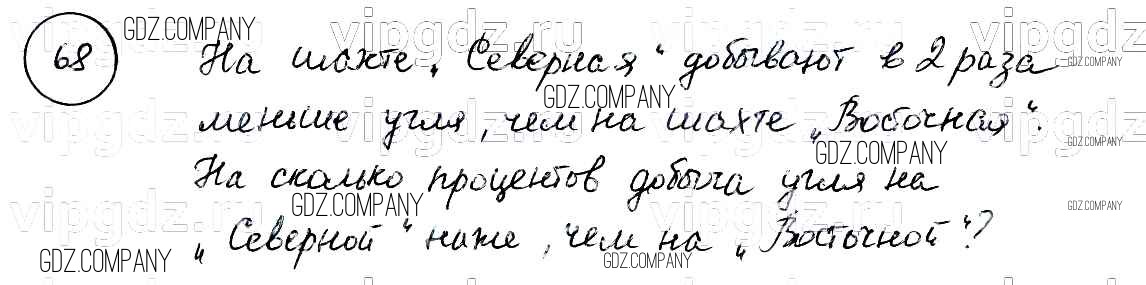 68
На шахте „Северная“ добывают в 2 раза
меньше угля, чем на шахте „Восточная“.
На сколько процентов добыча угля на
„Северной“ ниже, чем на „Восточной“?
GDZ.COMPANY
GDZ.COMPANY
GDZ.COMPANY
GDZ.COMPANY
GDZ.COMPANY
GDZ.COMPANY
GDZ.COMPANY
GDZ.COMPANY
GDZ.COMPANY
vipgdz.ru
vipgdz.ru
vipgdz.ru
vipgdz.ru